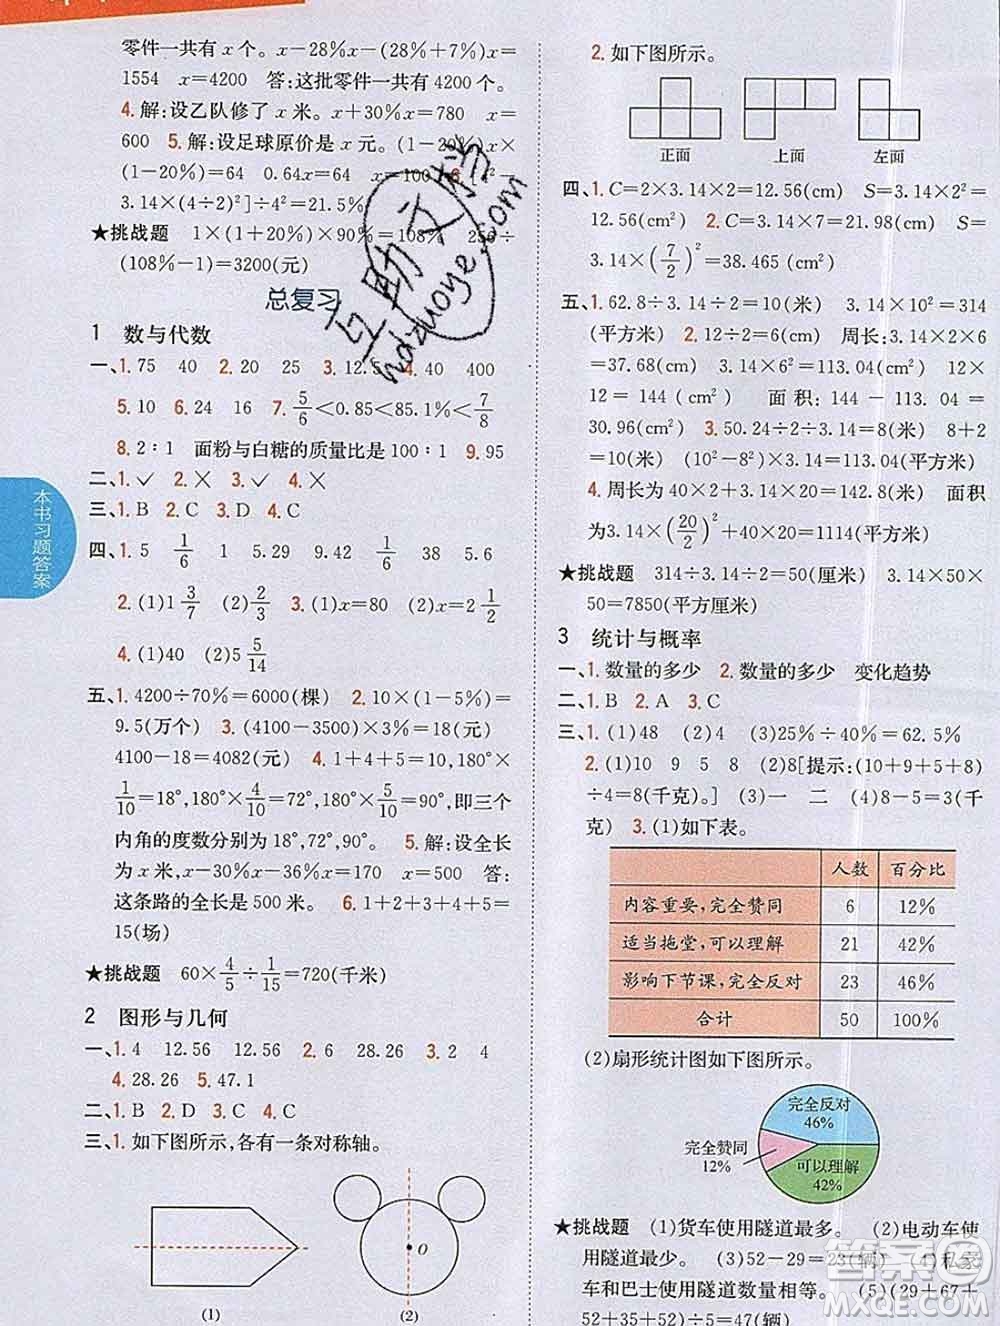 零件一共有 x 个。 x－28%x－(28%＋7%)x＝
1554 x＝4200 答:这批零件一共有 4200 个。
4.解:设乙队修了 x 米。x＋30%x＝780 x＝
600 5.解:设足球原价是 x 元。(1－20%)×
(1－20%)x＝64 0.64x＝64 x＝100 6.
3.14×(4÷2)²]÷4²＝21.5%
★挑战题 1×(1＋20%)×90%＝108% 256÷
(108%－1)＝3200(元)
总复习
1 数与代数
一、1.75 40 2.20 25 3.12.5 4.40 400
5.10 6.24 16 7.5/6＜0.85＜85.1%＜7/8
8.2∶1 面粉与白糖的质量比是 100∶1 9.95
二、1.✓ 2.✗ 3.✓ 4.✗
三、1.B 2.C 3.D 4.C
四、1.5 1/6 1 5.29 9.42 1/6 38 5.6
2.(1)1 3/7 (2)2/3 3.(1)x＝80 (2)x＝2 1/2
4.(1)40 (2)5 5/14
五、1.4200÷70%＝6000(棵) 2.10×(1－5%)＝
9.5(万个) 3.(4100－3500)×3%＝18(元)
4100－18＝4082(元) 4.1＋4＋5＝10,180°×
1/10＝18°,180°×4/10＝72°,180°×5/10＝90°,即三个
内角的度数分别为 18°,72°,90°。 5.解:设全长
为 x 米。50%x－30%x－36%x＝170 x＝500 答:
这条路的全长是 500 米。 6.1＋2＋3＋4＋5＝
15(场)
★挑战题 60×4/5÷1/15＝720(千米)
2 图形与几何
一、1.4 12.56 12.56 2.6 28.26 3.2 4
4.28.26 5.47.1
二、1.B 2.D 3.C 4.C
三、1.如下图所示,各有一条对称轴。
O
(1) (2)
本书习题答案
2.如下图所示。
正面 上面 左面
四、1.C＝2×3.14×2＝12.56(cm) S＝3.14×2²＝
12.56(cm²) 2.C＝3.14×7＝21.98(cm) S＝
3.14×(7/2)²＝38.465(cm²)
五、1.62.8÷3.14÷2＝10(米) 3.14×10²＝314
(平方米) 2.12÷2＝6(cm) 周长:3.14×2×6
＝37.68(cm) 3.14×6²＝113.04(cm²) 12×
12＝144(cm²) 面积:144－113.04＝
30.96(cm²) 3.50.24÷3.14÷2＝8(米) 8＋2
＝10(米) (10²－8²)×3.14＝113.04(平方米)
4.周长为 40×2＋3.14×20＝142.8(米) 面积
为 3.14×(20/2)²＋40×20＝1114(平方米)
★挑战题 314÷3.14÷2＝50(厘米) 3.14×50×
50＝7850(平方厘米)
3 统计与概率
一、1.数量的多少 2.数量的多少 变化趋势
二、1.B 2.A 3.C
三、1.(1)48 (2)4 (3)25%÷40%＝62.5%
2.(1)10 9 5 8 (2)8[提示:(10＋9＋5＋8)
÷4＝8(千克)。] (3)一 二 (4)8－5＝3(千
克) 3.(1)如下表。
人数 百分比
内容重要,完全赞同 6 12%
适当拖堂,可以理解 21 42%
影响下节课,完全反对 23 46%
合计 50 100%
(2)扇形统计图如下图所示。
完全反对
46%
完全赞同
12%
可以理解
42%
★挑战题 (1)货车使用隧道最多。 (2)电动车使
用隧道最少。 (3)52－29＝23(辆) (4)私家
车和巴士使用隧道数量相等。 (5)(29＋67＋
52＋35＋52)÷5＝47(辆)
互助文档
hdzuoye.com
答案圈
MXQE.COM